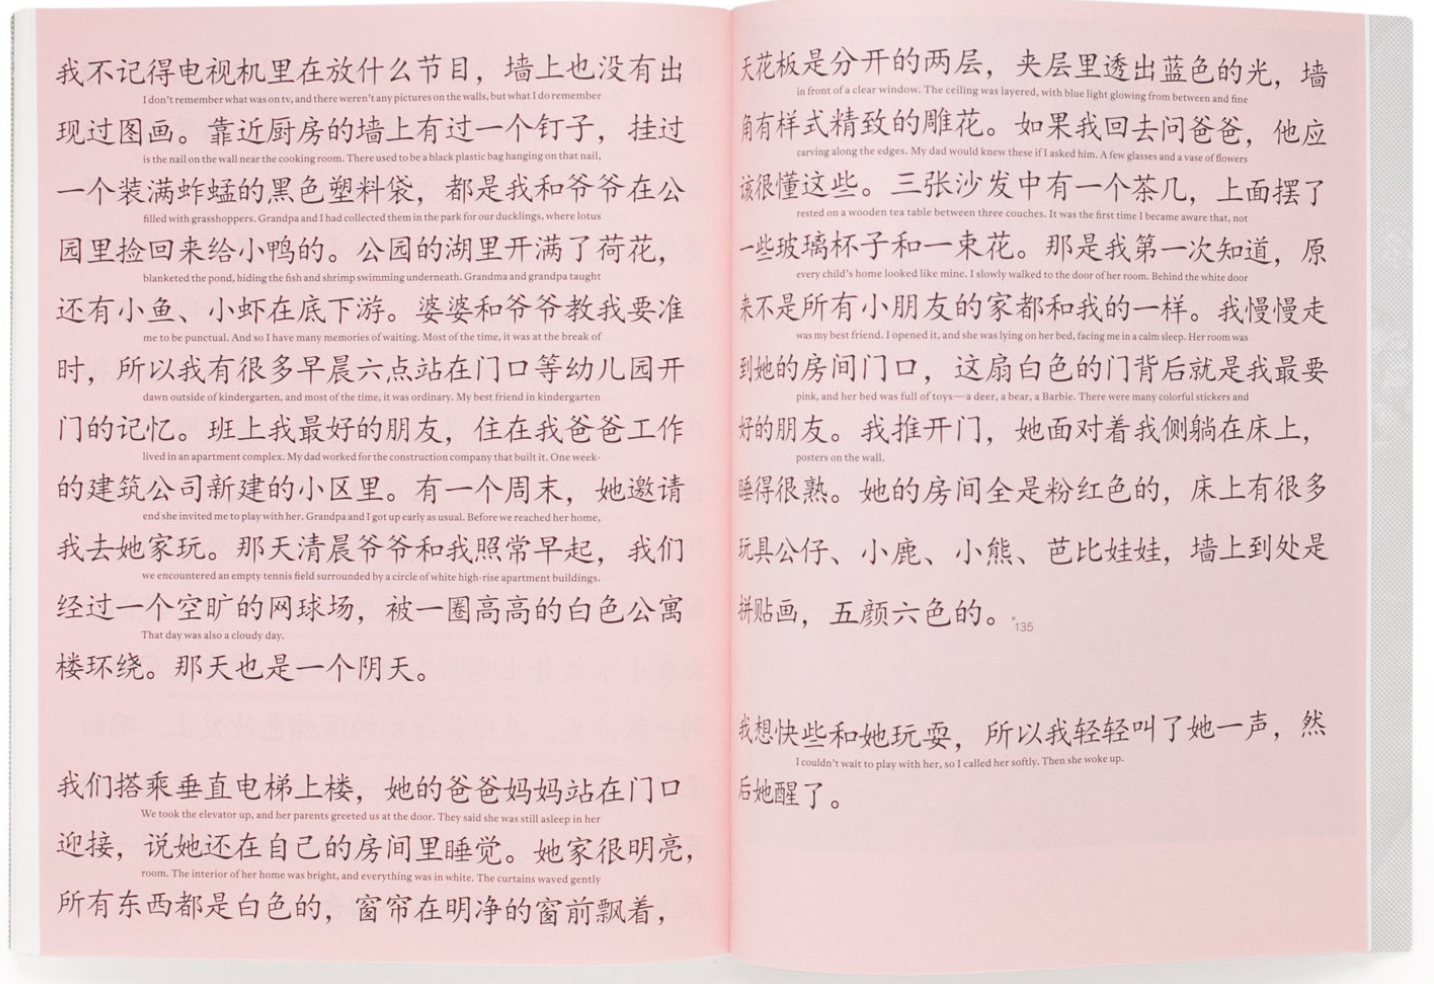 我不记得电视机里在放什么节目，墙上也没有出
I don't remember what was on tv, and there weren't any pictures on the walls, but what I do remember
现过图画。靠近厨房的墙上有过一个钉子，挂过
is the nail on the wall near the cooking room. There used to be a black plastic bag hanging on that nail,
一个装满蚱蜢的黑色塑料袋，都是我和爷爷在公
filled with grasshoppers. Grandpa and I had collected them in the park for our ducklings, where lotus
园里捡回来给小鸭的。公园的湖里开满了荷花，
blanketed the pond, hiding the fish and shrimp swimming underneath. Grandma and grandpa taught
还有小鱼、小虾在底下游。婆婆和爷爷教我要准
me to be punctual. And so I have many memories of waiting. Most of the time, it was at the break of
时，所以我有很多早晨六点站在门口等幼儿园开
dawn outside of kindergarten, and most of the time, it was ordinary. My best friend in kindergarten
门的记忆。班上我最好的朋友，住在我爸爸工作
lived in an apartment complex. My dad worked for the construction company that built it. One week-
的建筑公司新建的小区里。有一个周末，她邀请
end she invited me to play with her. Grandpa and I got up early as usual. Before we reached her home,
我去她家玩。那天清晨爷爷和我照常早起，我们
we encountered an empty tennis field surrounded by a circle of white high-rise apartment buildings.
经过一个空旷的网球场，被一圈高高的白色公寓
That day was also a cloudy day.
楼环绕。那天也是一个阴天。
我们搭乘垂直电梯上楼，她的爸爸妈妈站在门口
We took the elevator up, and her parents greeted us at the door. They said she was still asleep in her
迎接，说她还在自己的房间里睡觉。她家很明亮，
room. The interior of her home was bright, and everything was in white. The curtains waved gently
所有东西都是白色的，窗帘在明净的窗前飘着，
天花板是分开的两层，夹层里透出蓝色的光，墙
in front of a clear window. The ceiling was layered, with blue light glowing from between and fine
角有样式精致的雕花。如果我回去问爸爸，他应
carving along the edges. My dad would knew these if I asked him. A few glasses and a vase of flowers
该很懂这些。三张沙发中有一个茶几，上面摆了
rested on a wooden tea table between three couches. It was the first time I became aware that, not
一些玻璃杯子和一束花。那是我第一次知道，原
every child's home looked like mine. I slowly walked to the door of her room. Behind the white door
来不是所有小朋友的家都和我的一样。我慢慢走
was my best friend. I opened it, and she was lying on her bed, facing me in a calm sleep. Her room was
到她的房间门口，这扇白色的门背后就是我最要
pink, and her bed was full of toys—a deer, a bear, a Barbie. There were many colorful stickers and
好的朋友。我推开门，她面对着我侧躺在床上，
posters on the wall.
睡得很熟。她的房间全是粉红色的，床上有很多
玩具公仔、小鹿、小熊、芭比娃娃，墙上到处是
拼贴画，五颜六色的。
135
我想快些和她玩耍，所以我轻轻叫了她一声，然
I couldn't wait to play with her, so I called her softly. Then she woke up.
后她醒了。